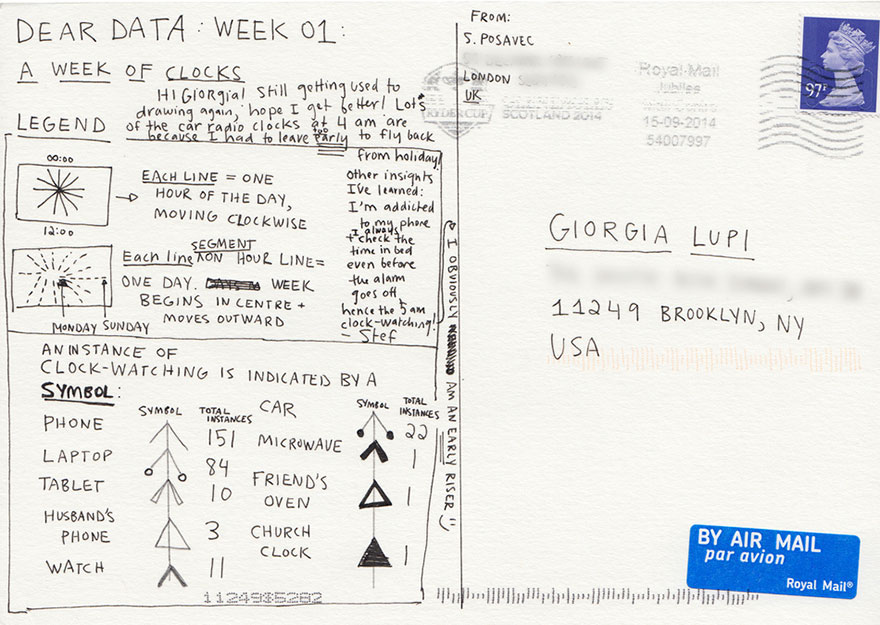 DEAR DATA: WEEK 01:
A WEEK OF CLOCKS
HI GIORGIA! Still getting used to
drawing again, hope I get better! Lots
of the car radio clocks at 4 am are
because I had to leave too early to fly back
from holiday!
LEGEND
00:00
12:00
EACH LINE = ONE
HOUR OF THE DAY,
MOVING CLOCKWISE
Each line SEGMENT ON HOUR LINE =
ONE DAY. WEEK
BEGINS IN CENTRE +
MOVES OUTWARD
MONDAY SUNDAY
Other insights
I've learned:
I'm addicted
to my phone
+ I always check the
time in bed
even before
the alarm
goes off,
hence the 5 am
clock-watching!
— Stef
I OBVIOUSLY AM AN EARLY RISER
AN INSTANCE OF
CLOCK-WATCHING IS INDICATED BY A
SYMBOL:
SYMBOL TOTAL INSTANCES
PHONE 151
LAPTOP 84
TABLET 10
HUSBAND'S PHONE 3
WATCH 11
SYMBOL TOTAL INSTANCES
CAR 22
MICROWAVE 1
FRIEND'S OVEN 1
CHURCH CLOCK 1
11249$5282
FROM:
S. POSAVEC
LONDON
UK
RYDER CUP
GLENEAGLES
SCOTLAND 2014
Royal Mail
Jubilee
Mail Centre
15-09-2014
54007997
97P
GIORGIA LUPI
11249 BROOKLYN, NY
USA
BY AIR MAIL
par avion
Royal Mail®